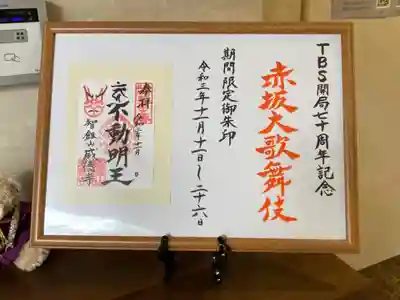 TBS開局七十周年記念
赤坂大歌舞伎
期間限定御朱印
令和三年十一月十一日〜二十六日
奉拝
不動明王
智剱山威徳寺